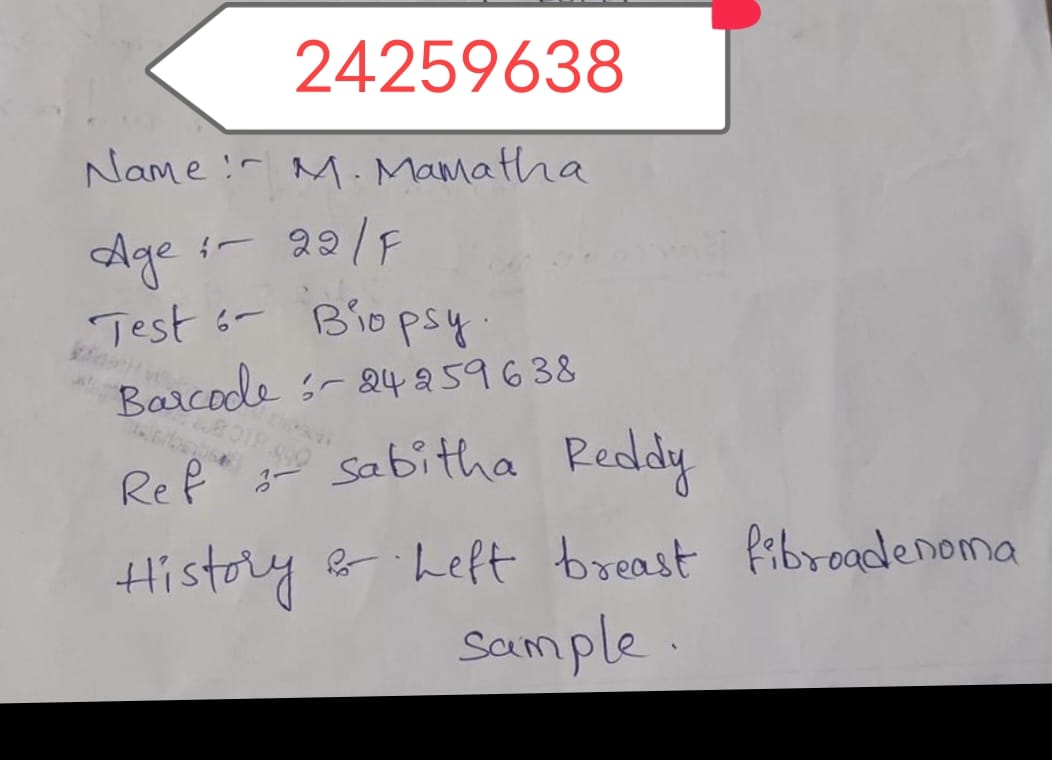 24259638
Name :- M. Mamatha
Age :- 22/F
Test :- Biopsy.
Barcode :- 24259638
Ref :- Sabitha Reddy
History :- Left breast fibroadenoma
sample.